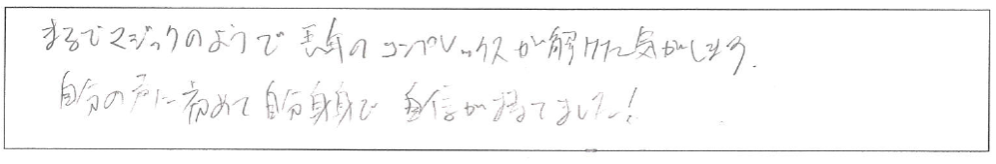 まるでマジックのようで長年のコンプレックスが解けた気がします。
自分の声に初めて自分自身で自信が持てました!